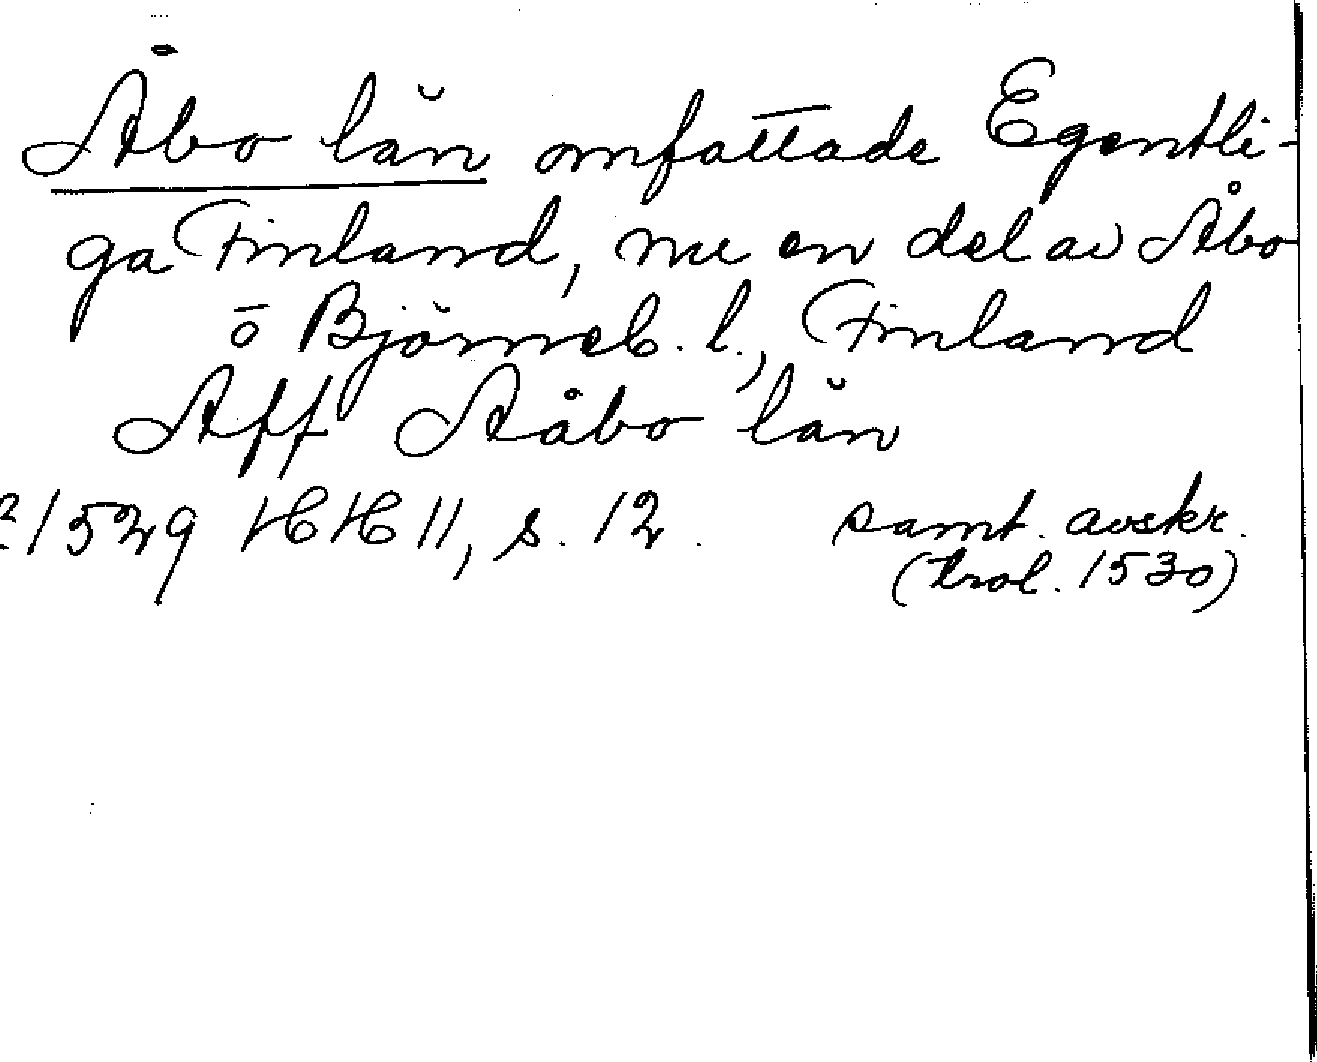 Åbo län omfattade Egentli-
ga Finland, nu en del av Åbo
o Björneb. l., Finland
Aff Aåbo län
1529 HH 11, s. 12. samt. avskr.
(trol. 1530)